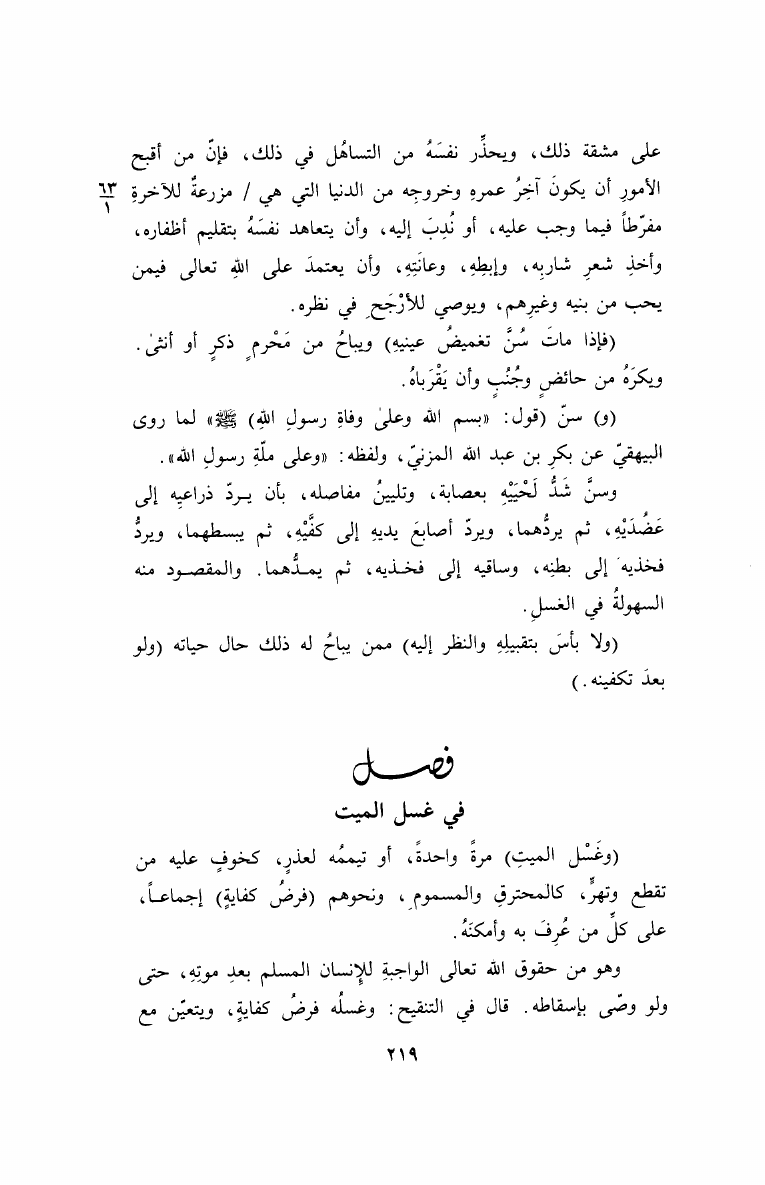 على مشقة ذلك، ويحذِّر نفسَهُ من التساهُل في ذلك، فإنّ من أقبح
الأمورِ أن يكونَ آخِرُ عمرِهِ وخروجِه من الدنيا التي هي / مزرعةٌ للآخرةِ ٦٣
١
مفرّطاً فيما وجب عليه، أو نُدِبَ إليه، وأن يتعاهد نفسَهُ بتقليم أظفاره،
وأخذِ شعرِ شاربِه، وإبطِهِ، وعانَتِهِ، وأن يعتمدَ على اللهِ تعالى فيمن
يحب من بنيه وغيرِهم، ويوصي للأرْجَحِ في نظره.
(فإذا ماتَ سُنَّ تغميضُ عينيهِ) ويباحُ من مَحْرمٍ ذكرٍ أو أنثىٰ.
ويكرَهُ من حائضٍ وجُنُبٍ وأن يَقْرَباهُ.
(و) سنّ (قول: «بسم الله وعلىٰ وفاةِ رسولِ اللهِ) ﷺ» لما روى
البيهقيّ عن بكرِ بن عبد الله المزنيّ، ولفظه: «وعلى ملّةِ رسولِ الله».
وسنَّ شَدُّ لَحْيَيْهِ بعصابة، وتليينُ مفاصله، بأن يردّ ذراعيه إلى
عَضُدَيْهِ، ثم يردُّهما، ويردّ أصابعَ يديهِ إلى كفَّيْهِ، ثم يبسطهما، ويردُّ
فخذيه إلى بطنِه، وساقيه إلى فخذيه، ثم يمدُّهما. والمقصود منه
السهولةُ في الغسلِ.
(ولا بأسَ بتقبيلِهِ والنظر إليه) ممن يباحُ له ذلك حال حياته (ولو
بعدَ تكفينه.)
فصل
في غسل الميت
(وغَسْل الميتِ) مرةً واحدةً، أو تيممُه لعذرٍ، كخوفٍ عليه من
تقطع وتهرٍّ، كالمحترقِ والمسمومِ، ونحوهم (فرضُ كفايةٍ) إجماعاً،
على كلِّ من عُرِفَ به وأمكنَهُ.
وهو من حقوق الله تعالى الواجبةِ للإنسان المسلم بعدِ موتِهِ، حتى
ولو وصّى بإسقاطه. قال في التنقيح: وغسلُه فرضُ كفايةٍ، ويتعيّن مع
٢١٩